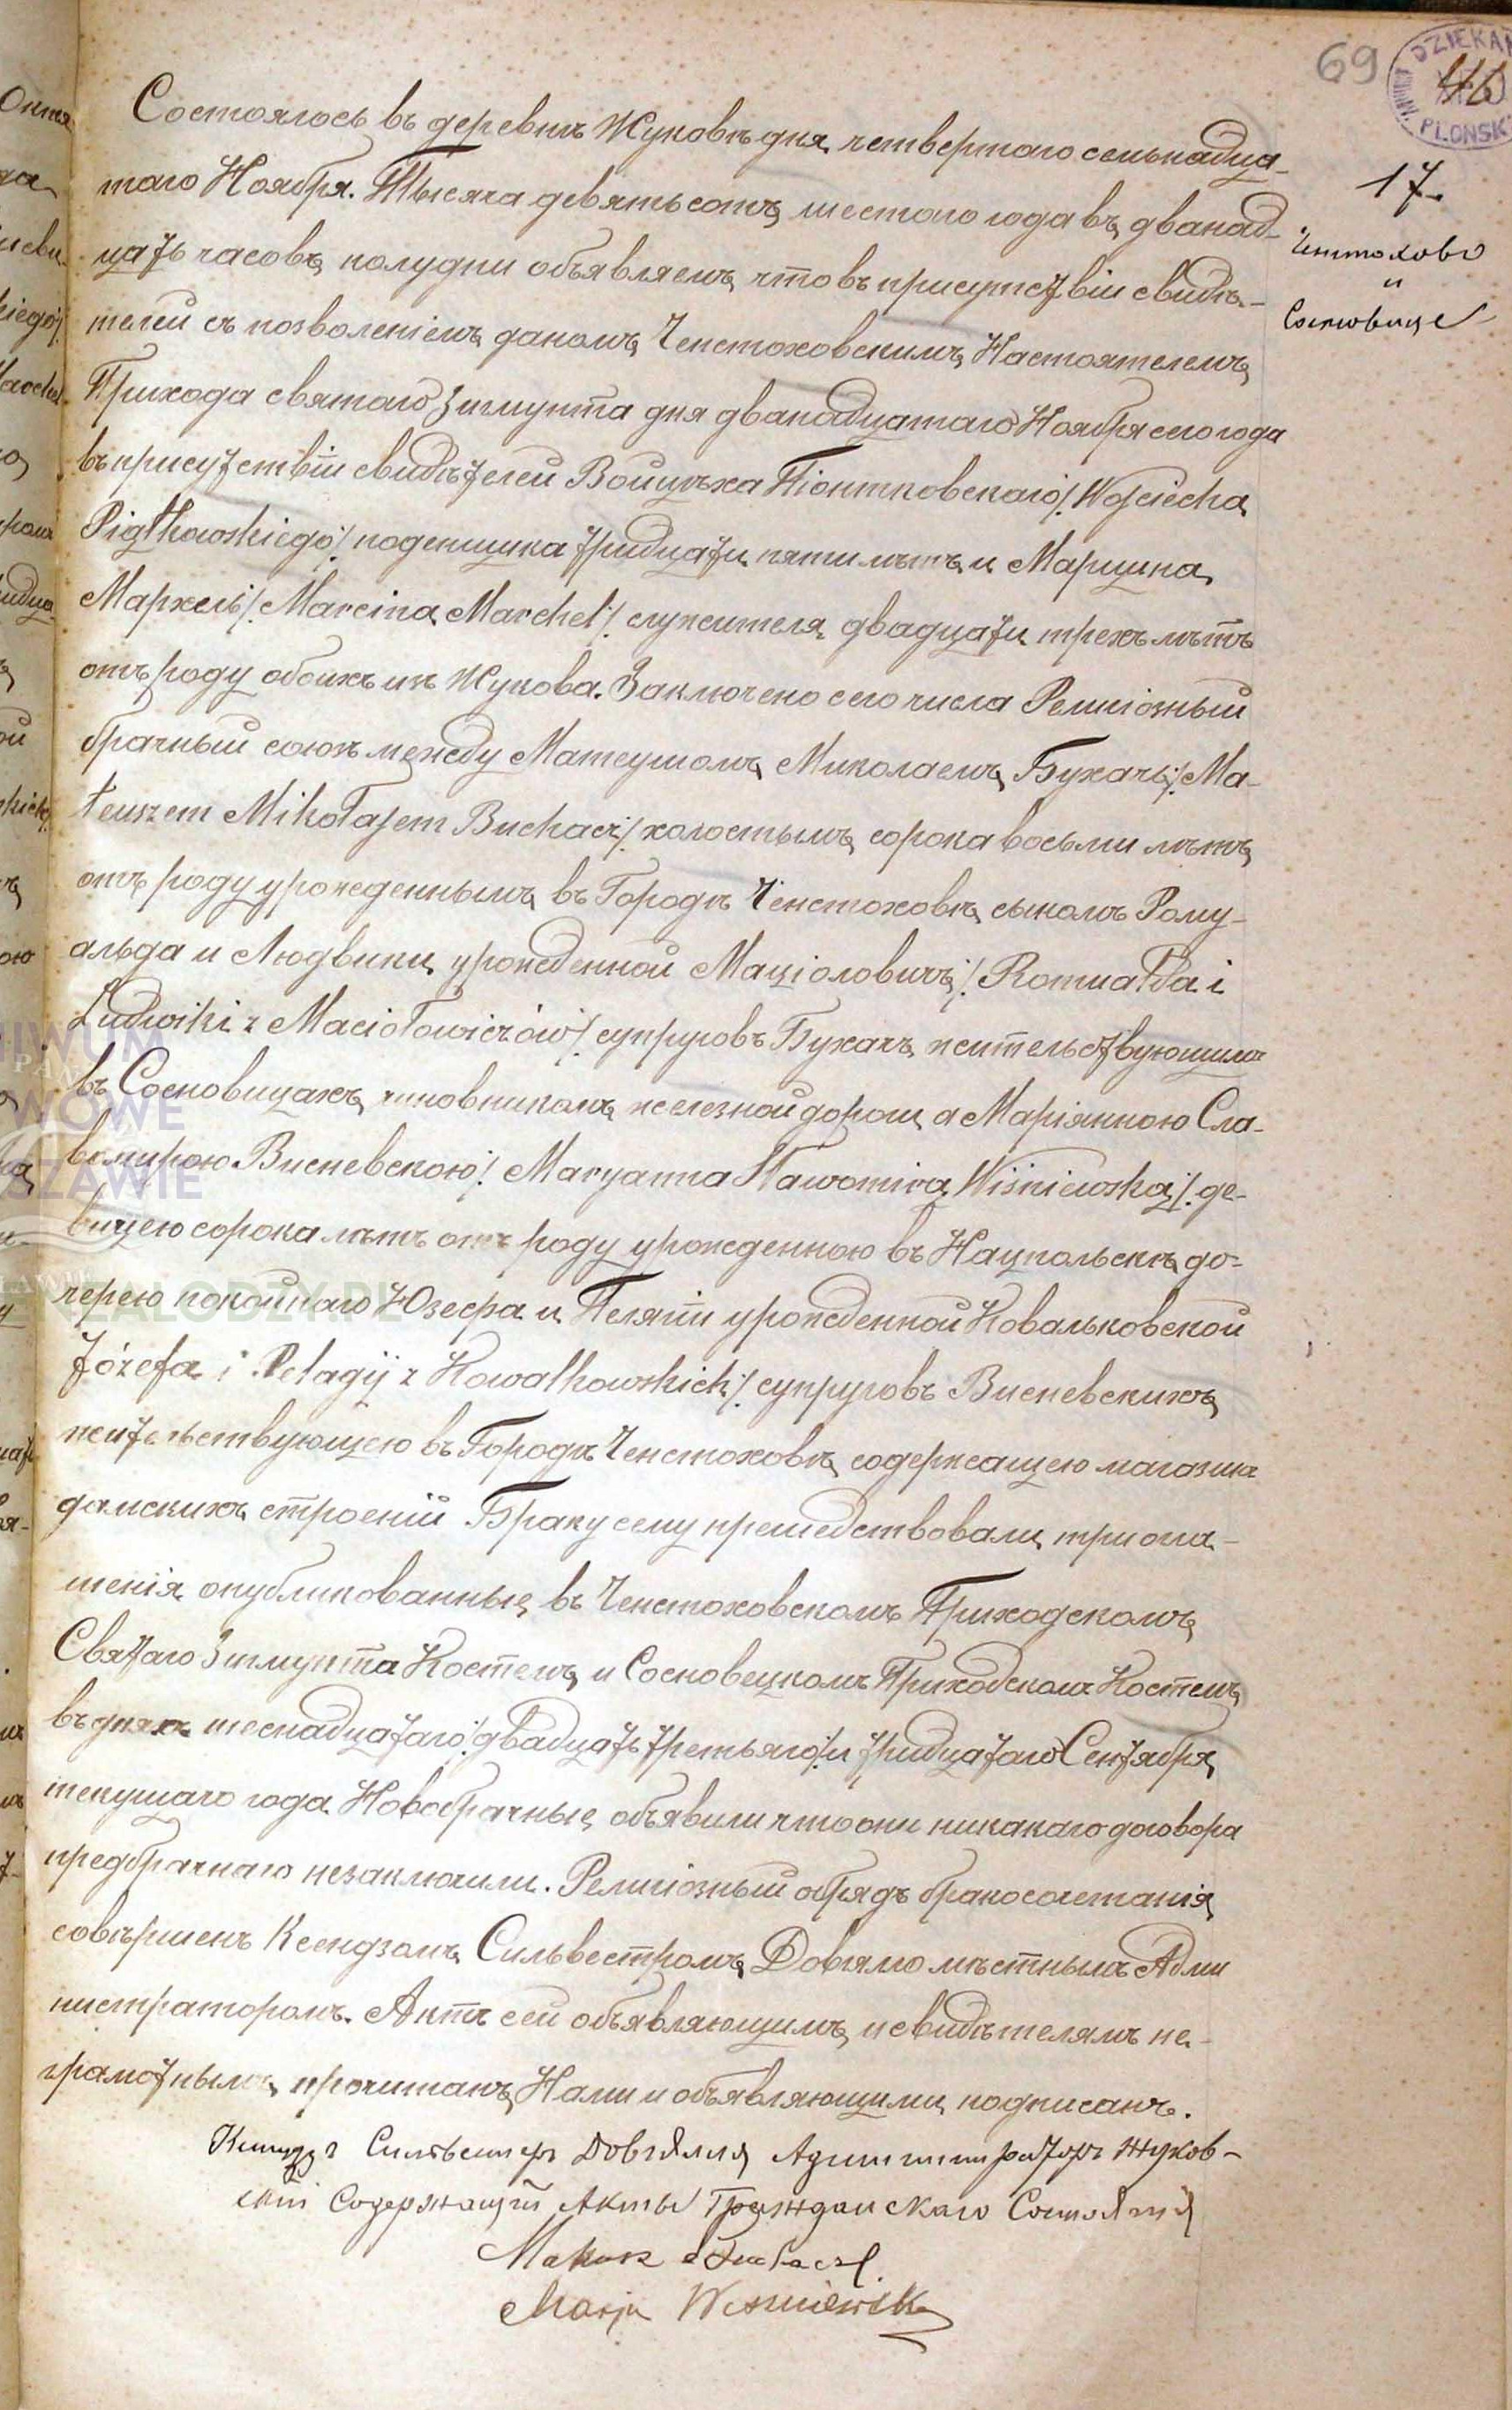 69
DZIEKAN
PŁOŃSK
46
17
Ченстохово
и
Сосновице
Состоялось въ деревнѣ Жуковѣ дня четвертаго семьнадца-
таго Ноября. Тысяча девятьсотъ шестого года въ дванад-
цать часовъ полудни объявляемъ что въ присутствіи свидѣ-
телей съ позволеніемъ даномъ Ченстоховскимъ Настоятелемъ
Прихода святаго Зигмунта дня дванадцатаго Ноября сего года
въ присутствіи свидѣтелей Войцѣха Піонтковскаго /: Wojciecha
Piątkowskiego :/ поденщика тридцати пяти лѣтъ и Марцина
Мархель /: Marcina Marchel :/ служителя двадцати трехъ лѣтъ
отъ роду обоихъ изъ Жукова. Заключено сего числа Религіозный
брачный союзъ между Матеушомъ Миколаемъ Бухачъ /: Ma-
teuszem Mikołajem Buchacz :/ холостымъ сорока восьми лѣтъ
отъ роду урожденнымъ въ Городѣ Ченстоховѣ сыномъ Рому-
альда и Людвики урожденной Маціоловичъ /: Romualda i
Ludwiki z Maciołowiczów :/ супруговъ Бухачъ жительствующимъ
въ Сосновицахъ чиновникомъ железной дороги а Маріянною Сла-
вомирою Висневскою /: Maryanna Sławomira Wiśniewska :/ де-
вицею сорока лѣтъ отъ роду урожденною въ Нацпольскѣ до-
черею покойнаго Юзефа и Пелягіи урожденной Ковальковской
Józefa i Pelagij z Kowalkowskich :/ супруговъ Висневскихъ
жительствующею въ Городѣ Ченстоховѣ содержащею магазинъ
дамскихъ строеній Браку сему предшествовали три огла-
шенія опубликованные въ Ченстоховскомъ Приходскомъ
Святаго Зигмунта Костелѣ и Сосновецкомъ Приходскомъ Костелѣ
въ дняхъ шеснадцатаго /: двадцать третьяго :/ и тридцатаго Сентября
текущаго года Новобрачные объявили что они никакаго договора
предбрачнаго незаключили. Религіозный обрядъ бракосочетанія
совѣршенъ Ксендзомъ Сильвестромъ Довялло мѣстнымъ Адми
нистраторомъ. Актъ сей объявляющимъ и свидѣтелямъ не-
грамотнымъ прочитанъ Нами и объявляющими подписанъ.
Ксендзъ Сильвестръ Довялло Администраторъ Жуков-
скій Содержащій Акты Гражданскаго Состоянія
Marja Wiśniewska